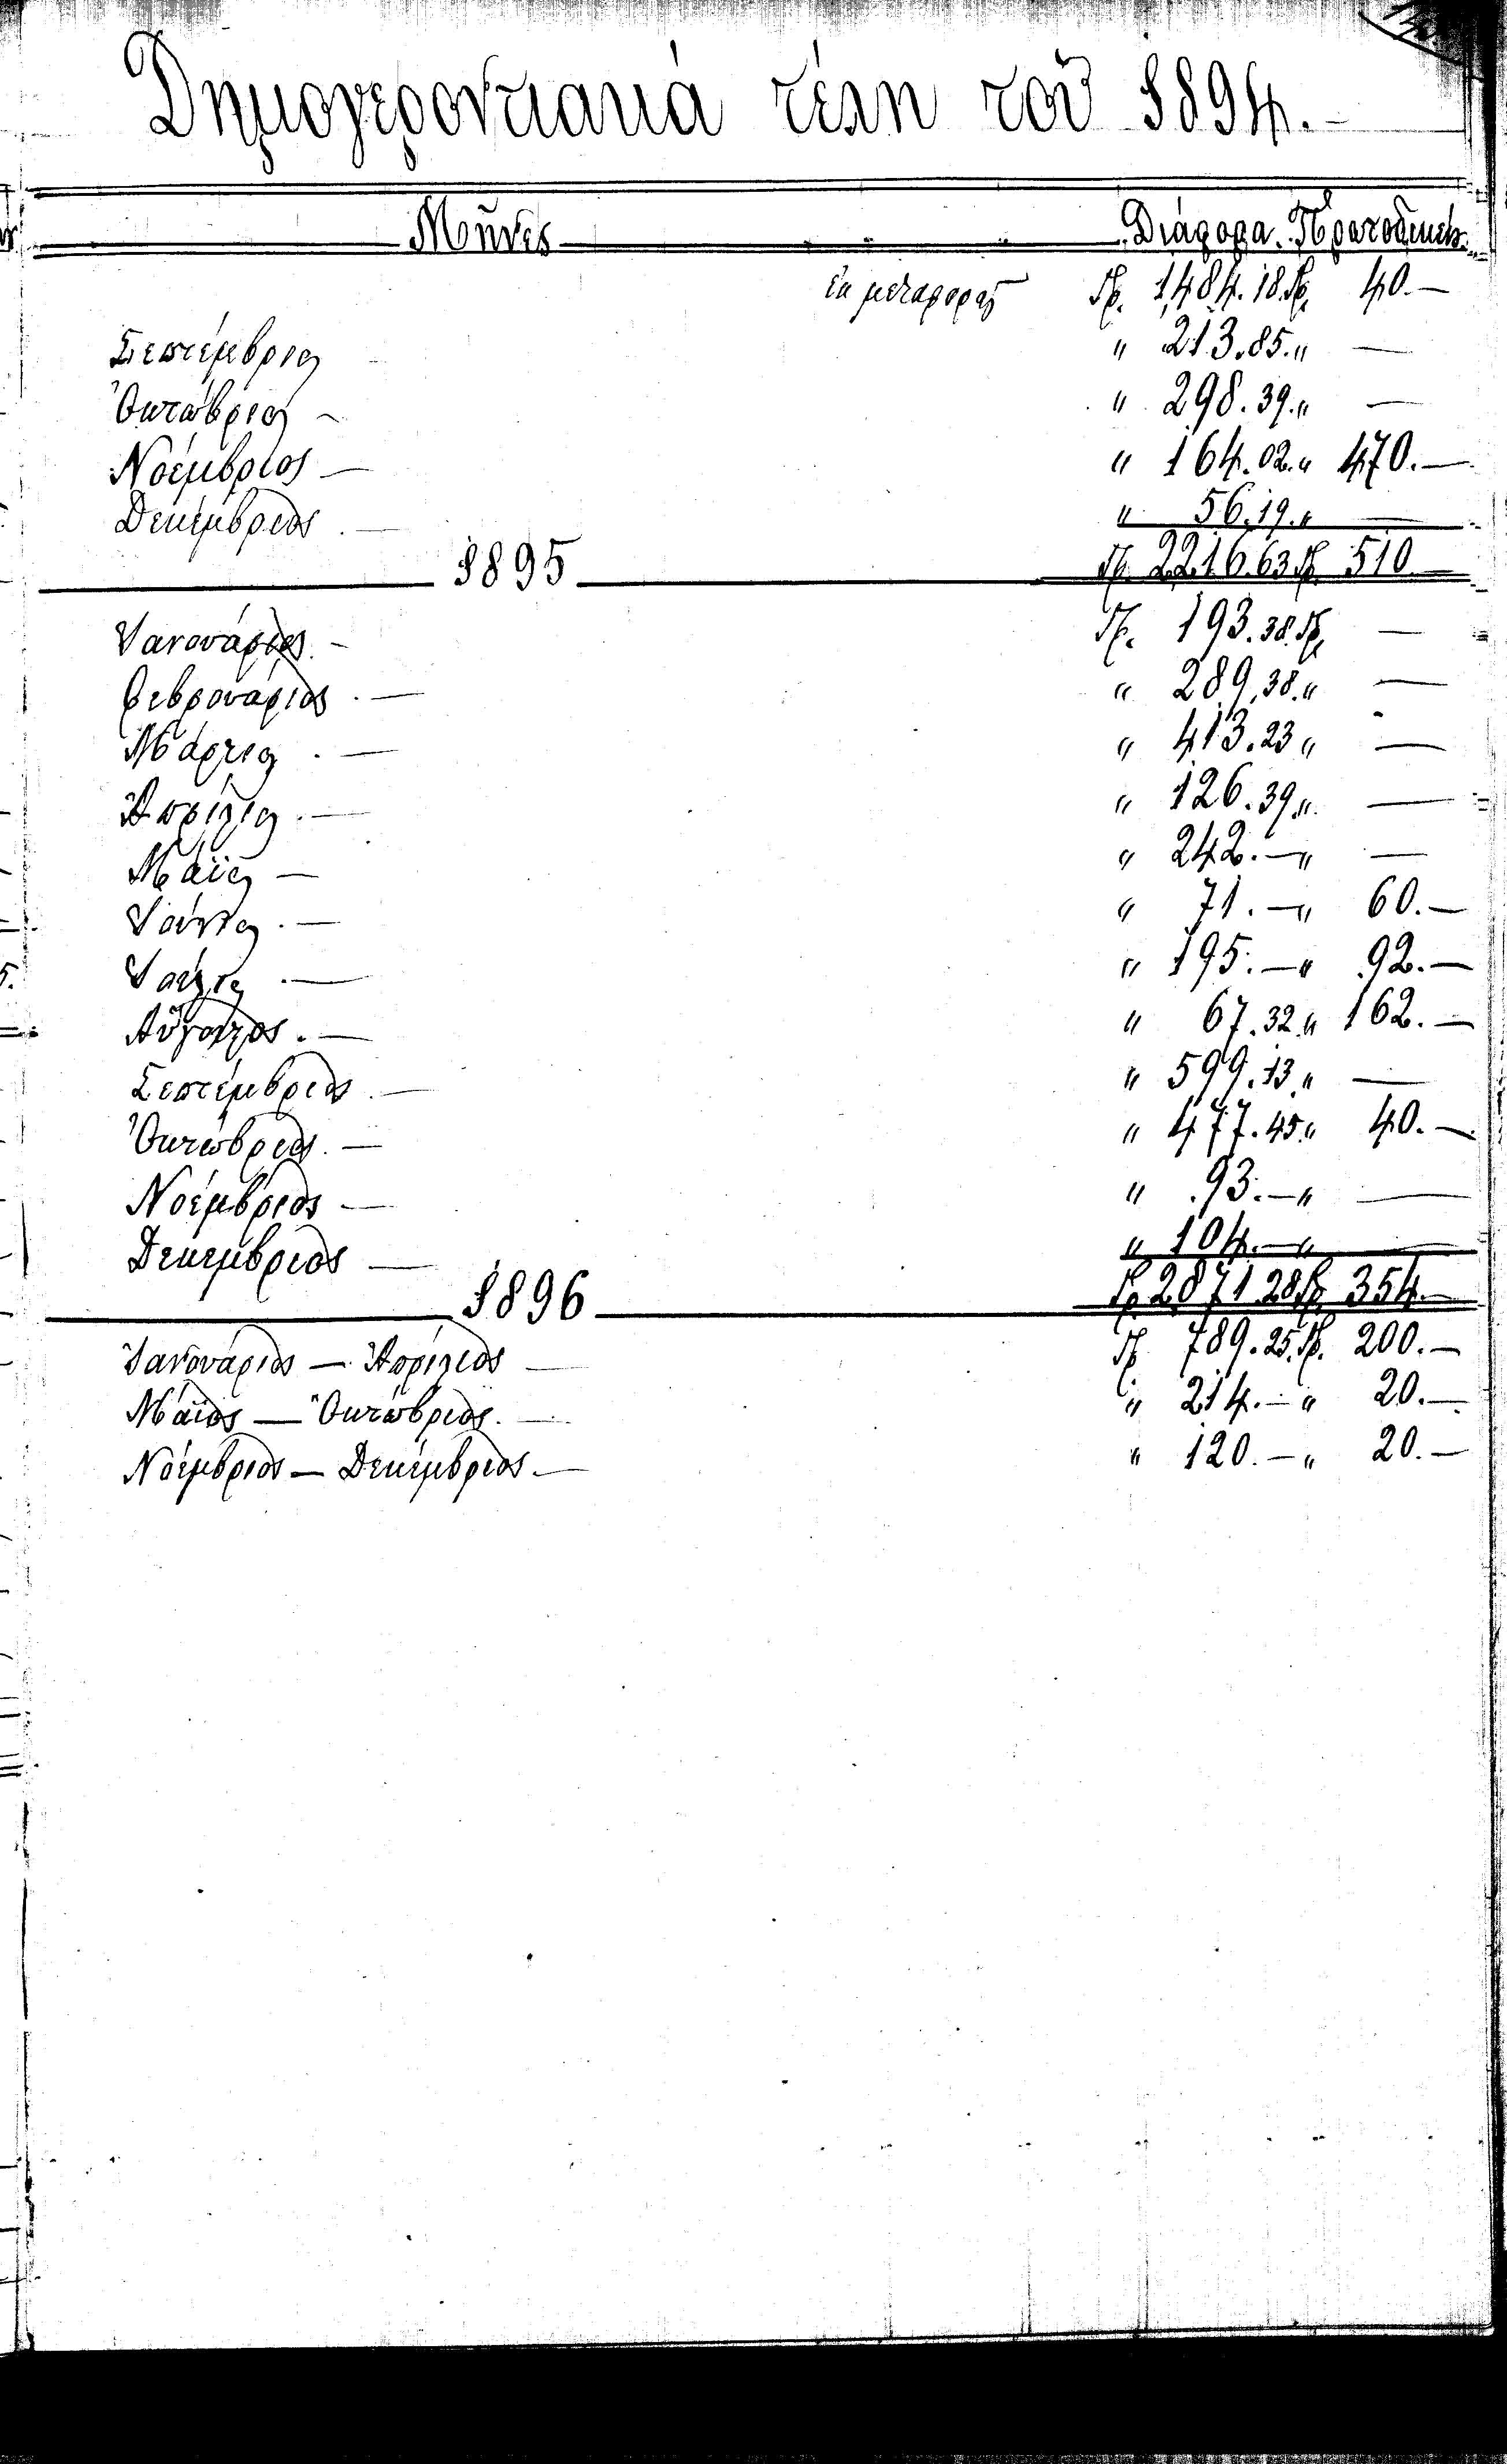 Δημογεροντιακά τέλη τοῦ 1894.-
Μῆνες Διάφορα. Πρωτοδικεῖον
ἐκ μεταφορᾶς Γρ. 1,484.18. Γρ. 40.—
Σεπτέμβριος " 213.85. " —
Ὀκτώβριος — " 298.39. " —
Νοέμβριος — " 164.02. " 470.—
Δεκέμβριος . — " 56.19. " —
1895 Γρ. 2216.63 Γρ. 510.—
Ἰανουάριος. — Γρ. 193.38. Γρ. —
Φεβρουάριος . — " 289.38. " —
Μάρτιος . — " 413.23 " —
Ἀπρίλιος . — " 126.39 " —
Μάϊος — " 242.— " —
Ἰούνιος . — " 71.— " 60.—
Ἰούλιος . — " 195.— " 92.—
Αὔγουστος . — " 67.32 " 162.—
Σεπτέμβριος . — " 599.13 " —
Ὀκτώβριος. — " 477.45. " 40.—
Νοέμβριος — " 93.— " —
Δεκέμβριος — " 104.— " —
1896 Γρ. 2871.28 Γρ. 354.—
Ἰανουάριος — Ἀπρίλιος — Γρ. 789.25. Γρ. 200.—
Μάϊος — Ὀκτώβριος. — " 214.— " 20.—
Νοέμβριος — Δεκέμβριος — " 120.— " 20.—